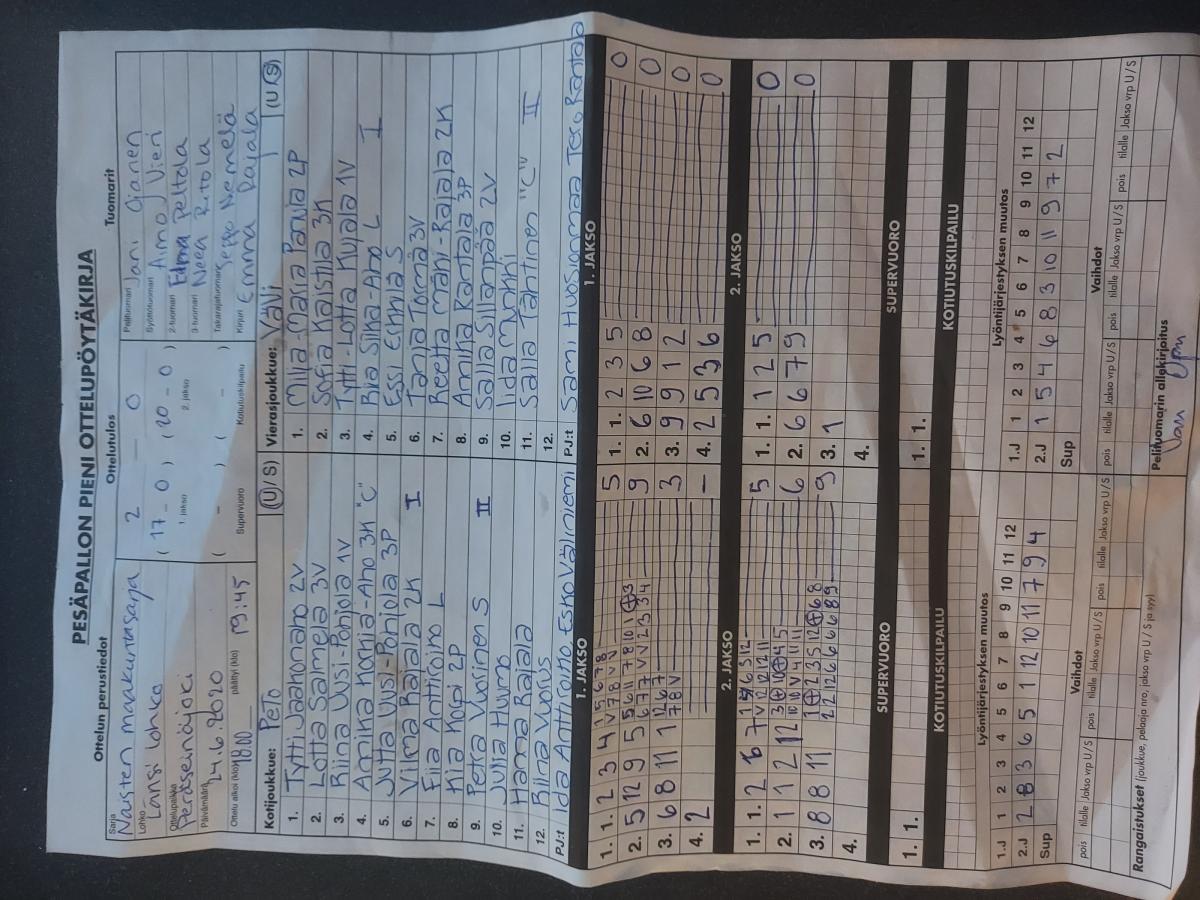 PESÄPALLON PIENI OTTELUPÖYTÄKIRJA
Ottelun perustiedot
Sarja
Naisten maakuntasarja
Lohko
Länsi lohko
Ottelupaikka
Peräseinäjoki
Päivämäärä
24.6.2020
Ottelu alkoi (klo) 18:00 päättyi (klo) 19:45
Ottelutulos
2 – 0
( 17 – 0 ) ( 20 – 0 )
1. jakso 2. jakso
( – ) ( – )
Supervuoro Kotiutuskilpailu
Tuomarit
Pelituomari Jani Ojanen
Syöttötuomari Aimo Vieri
2-tuomari Elina Peltola
3-tuomari Neea Ritola
Takarajatuomari Seppo Nemelä
Kirjuri Emma Rajala
Kotijoukkue: PeTo (U / S)
1. Tytti Jaakonaho 2V
2. Lotta Salmela 3V
3. Riina Uusi-Pohjola 1V
4. Annika Honja-Aho 3K "C"
5. Jutta Uusi-Pohjola 3P
6. Vilma Rajala 2K I
7. Eila Anttiroiko L
8. Kia Korpi 2P
9. Petra Vuorinen S II
10. Julia Humo
11. Hanna Rajala
12. Riina Vuorus
PJ:t Ida Anttiroiko, Esko Väliniemi
Vierasjoukkue: VäVi (U / S)
1. Milja-Maria Panula 2P
2. Sofia Kaistila 3K
3. Tytti-Lotta Kujala 1V
4. Ria Silka-Aho L I
5. Essi Erkkilä S
6. Tanja Tomä 3V
7. Reetta Mäki-Rajala 2K
8. Annika Rantala 3P
9. Salla Sillanpää 2V
10. Iida Murhi
11. Salla Tähtinen "C" II
12.
PJ:t Sami Huosionmaa Tero Rantaa
1. JAKSO
1. 1. 2 3 4 5
2. 5 12 9 5 9
3. 6 8 11 1 3
4. 2 –
1. JAKSO
1. 1. 2 3 5 0
2. 6 10 6 8 0
3. 9 9 1 2 0
4. 2 5 3 6 0
2. JAKSO
1. 1. 2 6 7 5
2. 1 1 2 12 6
3. 8 8 11 9
4.
2. JAKSO
1. 1. 1 2 5 0
2. 6 6 7 9 0
3. 1
4.
SUPERVUORO
1. 1.
SUPERVUORO
1. 1.
KOTIUTUSKILPAILU
KOTIUTUSKILPAILU
Lyöntijärjestyksen muutos
1.J 1 2 3 4 5 6 7 8 9 10 11 12
2.J 2 8 3 6 5 1 12 10 11 7 9 4
Sup
Lyöntijärjestyksen muutos
1.J 1 2 3 4 5 6 7 8 9 10 11 12
2.J 1 5 4 6 8 3 10 11 9 7 2
Sup
Vaihdot
pois tilalle Jakso vrp U/S pois tilalle Jakso vrp U/S pois tilalle Jakso vrp U/S
Vaihdot
pois tilalle Jakso vrp U/S pois tilalle Jakso vrp U/S pois tilalle Jakso vrp U/S
Rangaistukset (joukkue, pelaaja nro, jakso vrp U / S ja syy)
Pelituomarin allekirjoitus